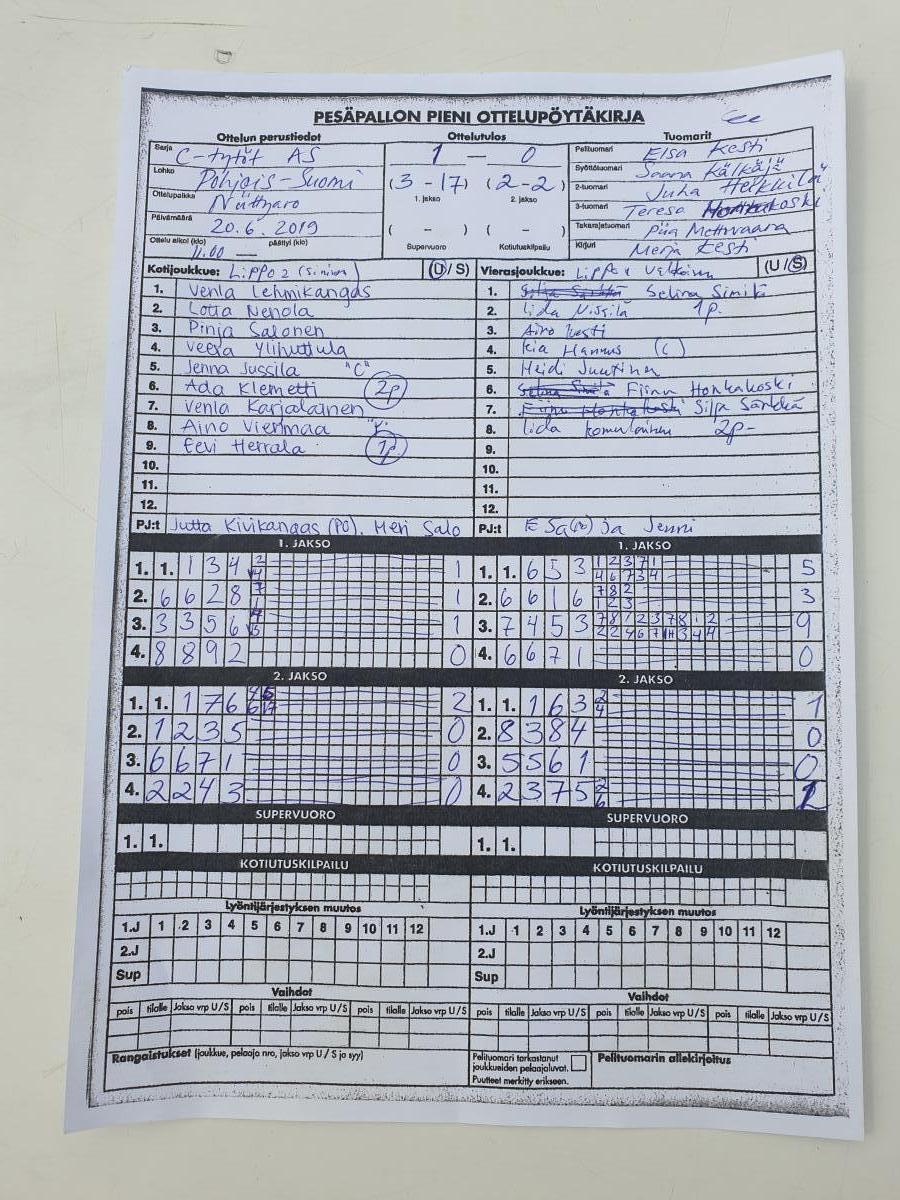 PESÄPALLON PIENI OTTELUPÖYTÄKIRJA
Ottelun perustiedot Ottelutulos Tuomarit
Sarja C-tytöt AS
Lohko Pohjois-Suomi
Ottelupaikka
Päivämäärä 20.6.2019
Ottelu alkoi (klo) 11.00 päättyi (klo) —
1 — 0
(3 - 17) (2 - 2)
1. jakso 2. jakso
( - ) ( - )
Supervuoro Kotiutuskilpailu
Pelituomari Elsa Kesti
Syöttötuomari Saana Kälkäjä
2-tuomari Juha Heikkilä
3-tuomari Teresa Honkakoski
Takarajatuomari Piia Mettovaara
Kirjuri Merja Kesti
Kotijoukkue: Lippo 2 (Sininen) (U/S)
1. Venla Lehmikangas
2. Lotta Nenola
3. Pinja Salonen
4. Veera Ylihuttula
5. Jenna Jussila "C"
6. Ada Klemetti 2p
7. Venla Karjalainen
8. Aino Vierimaa
9. Eevi Herrala 1p
10.
11.
12.
PJ:t Jutta Kivikangas (PÖ), Meri Salo
Vierasjoukkue: Lippo 1 (U/S)
1. Selina Similä
2. Iida Nissilä 1p.
3. Aino Kesti
4. Kia Hannus (C)
5. Heidi Juutinen
6. Fiinu Honkakoski
7. Silja Särkkä
8. Iida Komulainen 2p-
9.
10.
11.
12.
PJ:t ja Jenni
1. JAKSO 1. JAKSO
1. 1. 1 3 4 2 4 1
2. 6 6 2 8 7 1 1
3. 3 3 5 6 1
4. 8 8 9 2 0
1. 1. 6 5 3 1 2 3 7 1 5
4 6 7 3 4
2. 6 6 1 6 7 8 2 3
1 2 3
3. 7 4 5 3 7 8 1 2 3 7 8 1 2 9
4. 6 6 7 1 0
2. JAKSO 2. JAKSO
1. 1. 1 7 6 2
2. 1 2 3 5 0
3. 6 6 7 1 0
4. 2 2 4 3 0
1. 1. 1 6 3 2 4 1
2. 8 3 8 4 0
3. 5 5 6 1 0
4. 2 3 7 5 2 6 1
SUPERVUORO SUPERVUORO
1. 1. 1. 1.
KOTIUTUSKILPAILU KOTIUTUSKILPAILU
Lyöntijärjestyksen muutos Lyöntijärjestyksen muutos
1.J 1 2 3 4 5 6 7 8 9 10 11 12 1.J 1 2 3 4 5 6 7 8 9 10 11 12
2.J 2.J
Sup Sup
Vaihdot Vaihdot
pois tilalle Jakso vrp U/S pois tilalle Jakso vrp U/S pois tilalle Jakso vrp U/S pois tilalle Jakso vrp U/S pois tilalle Jakso vrp U/S pois tilalle Jakso vrp U/S
Rangaistukset (joukkue, pelaaja nro, jakso vrp U/S ja syy)
Pelituomari tarkastanut
joukkueiden pelaajaluvat.
Puutteet merkitty erikseen.
Pelituomarin allekirjoitus